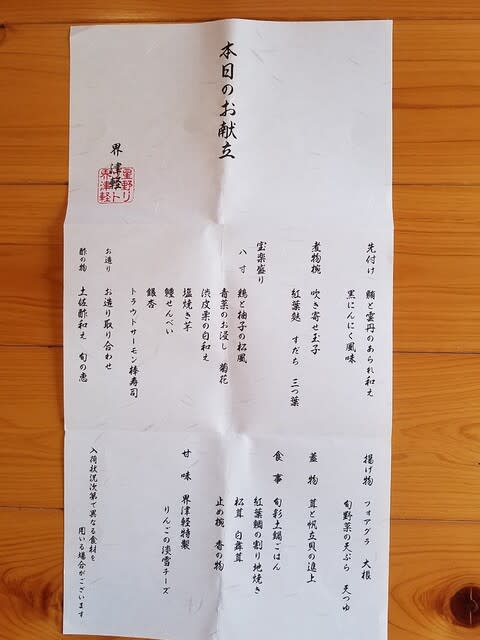 本日のお献立
界 津軽
星野リ
ゾート
界津軽
先付け 鮪と雲丹のあられ和え
黒にんにく風味
煮物椀 吹き寄せ玉子
紅葉麩 すだち 三つ葉
宝楽盛り
八寸 鶏と柚子の松風
青菜のお浸し 菊花
渋皮栗の白和え
塩焼き芋
鰻せんべい
銀杏
トラウトサーモン棒寿司
お造り お造り取り合わせ
酢の物 土佐酢和え 旬の恵
揚げ物 フォアグラ 大根
旬野菜の天ぷら 天つゆ
蓋物 茸と帆立貝の進上
食事 旬彩土鍋ごはん
紅葉鯛の割り地焼き
松茸 白舞茸
止め椀 香の物
甘味 界津軽特製
りんごの淡雪チーズ
入荷状況次第で異なる食材を
用いる場合がございます